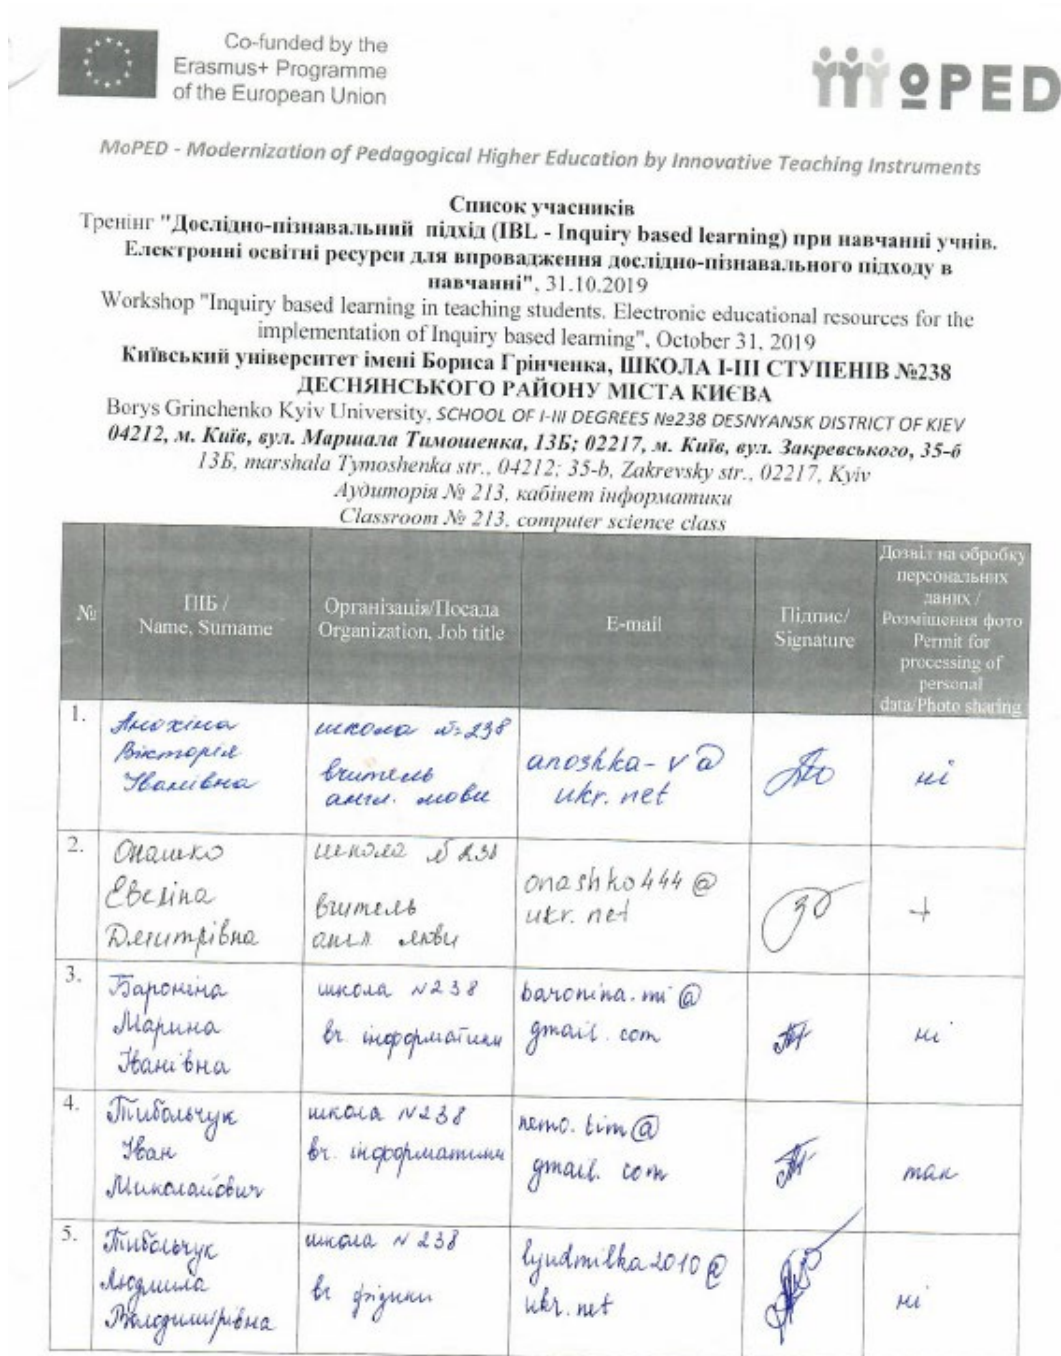 Co-funded by the
Erasmus+ Programme
of the European Union
MOPED
MoPED - Modernization of Pedagogical Higher Education by Innovative Teaching Instruments
Список учасників
Тренінг "Дослідно-пізнавальний підхід (IBL - Inquiry based learning) при навчанні учнів.
Електронні освітні ресурси для впровадження дослідно-пізнавального підходу в
навчанні", 31.10.2019
Workshop "Inquiry based learning in teaching students. Electronic educational resources for the
implementation of Inquiry based learning", October 31, 2019
Київський університет імені Бориса Грінченка, ШКОЛА І-ІІІ СТУПЕНІВ №238
ДЕСНЯНСЬКОГО РАЙОНУ МІСТА КИЄВА
Borys Grinchenko Kyiv University, SCHOOL OF I-III DEGREES №238 DESNYANSK DISTRICT OF KIEV
04212, м. Київ, вул. Маршала Тимошенка, 13Б; 02217, м. Київ, вул. Закревського, 35-б
13Б, marshala Tymoshenka str., 04212; 35-b, Zakrevsky str., 02217, Kyiv
Аудиторія № 213, кабінет інформатики
Classroom № 213, computer science class
№
ПІБ /
Name, Surname
Організація/Посада
Organization, Job title
E-mail
Підпис/
Signature
Дозвіл на обробку
персональних
даних /
Розміщення фото
Permit for
processing of
personal
data/Photo sharing
1.
Анохіна
Вікторія
Іванівна
школа №238
вчитель
англ. мови
anoshka-v@
ukr.net
ні
2.
Онашко
Евеліна
Дмитрівна
школа №238
вчитель
англ. мови
onashko444@
ukr.net
+
3.
Бароніна
Марина
Іванівна
школа №238
вч. інформатики
baronina.mi@
gmail.com
ні
4.
Іван
Миколайович
школа №238
вч. інформатики
nemo.tim@
gmail.com
так
5.
Людмила
Володимирівна
школа №238
вч фізики
lyudmilka2010@
ukr.net
ні